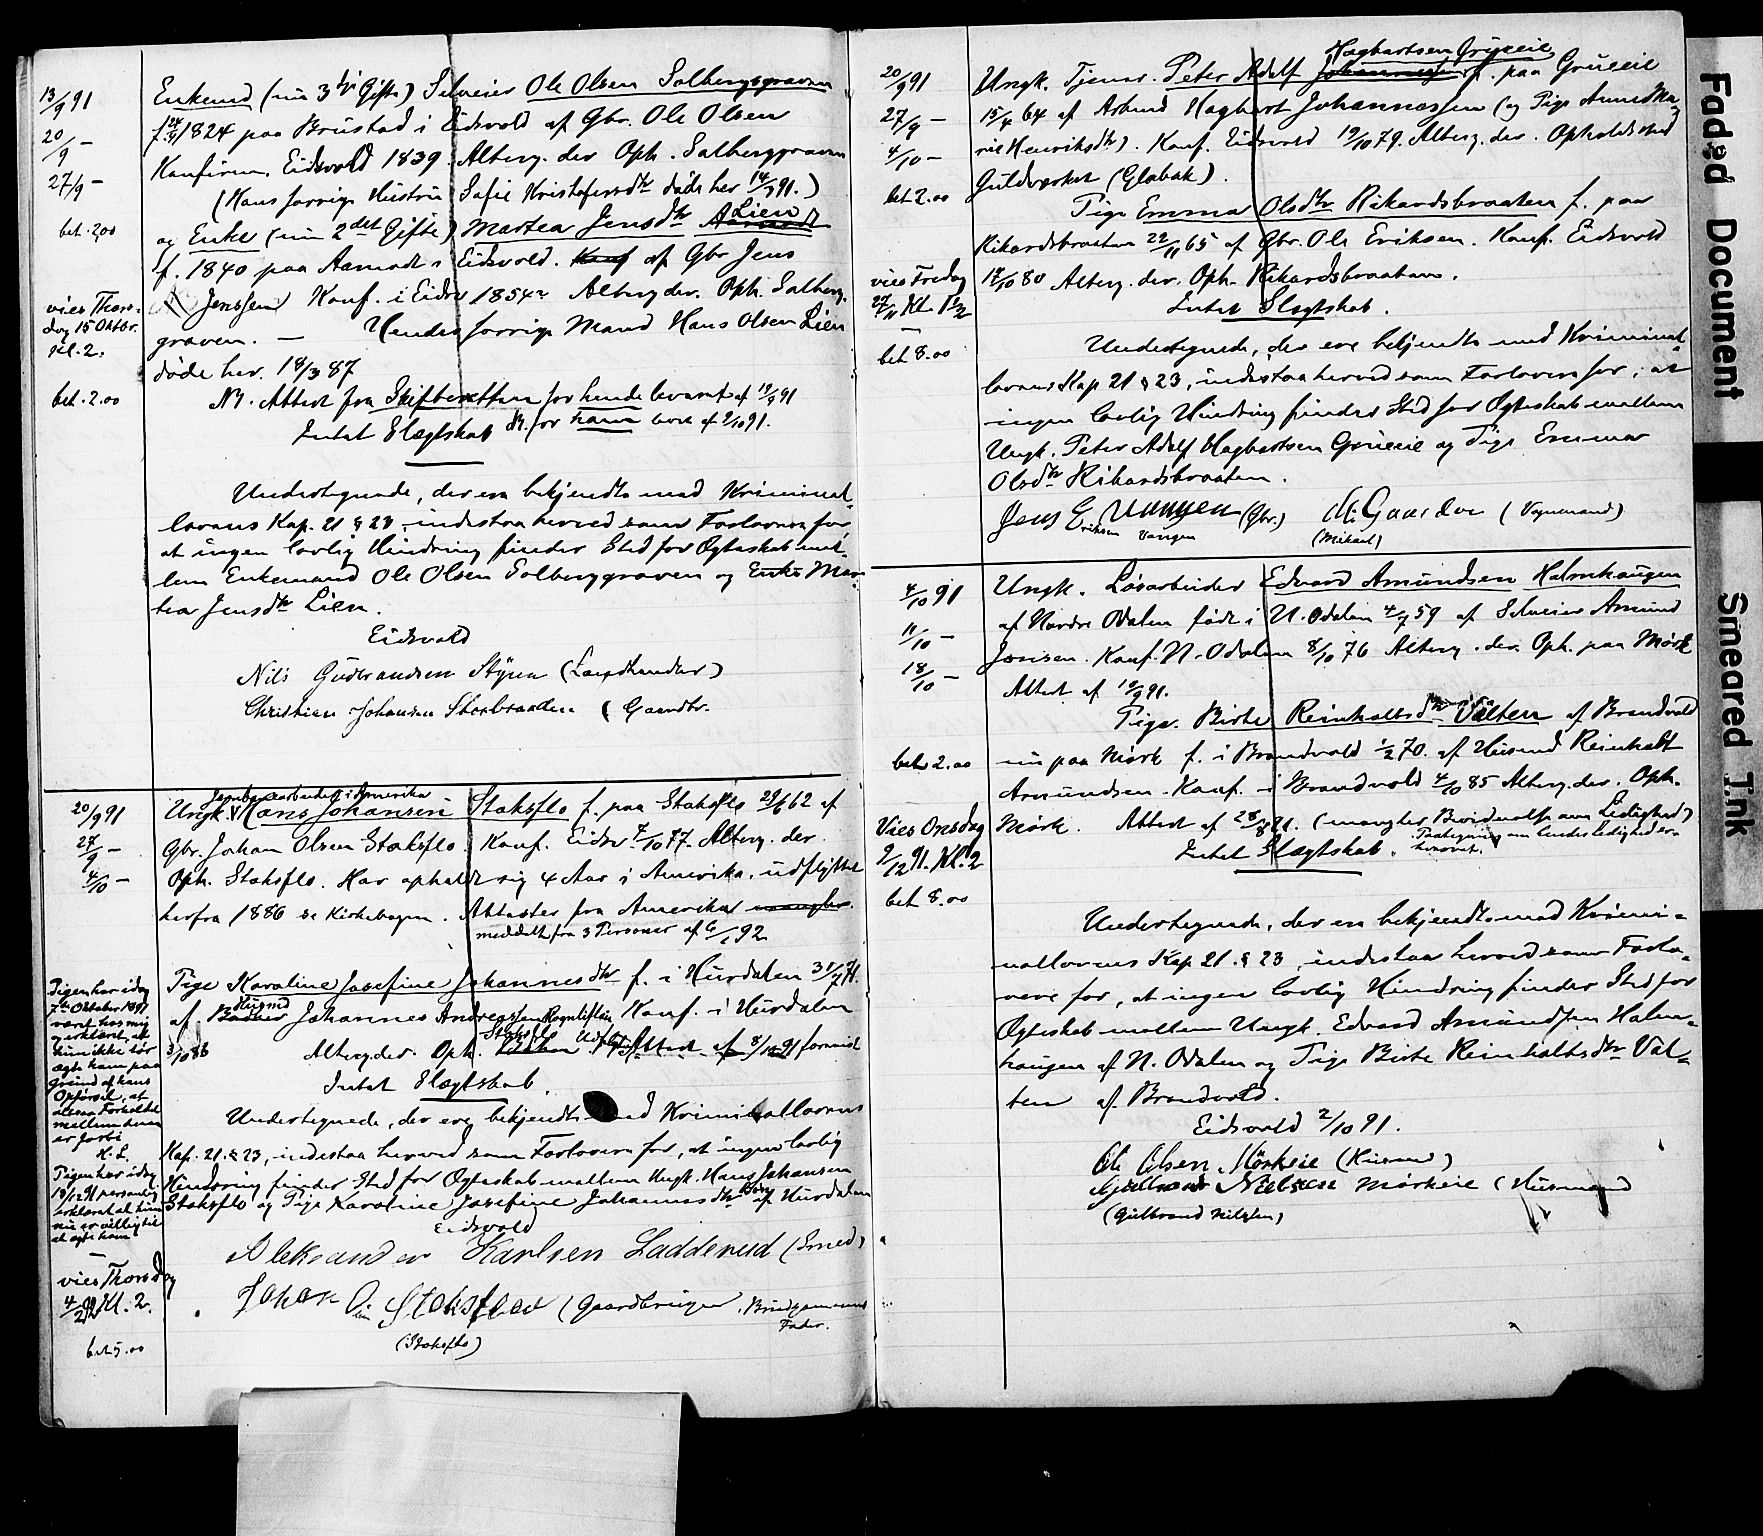 13/9 91
20/9 –
27/9 –
bet. 2,00
vies Thors-
dag 15 Oktbr.
Kl. 2.
bet. 2.00
Enkemd (nu 3die Gifte) Selveier Ole Olsen Solbergsgraven
f. 1824 paa Brustad i Eidsvold af Gbr. Ole Olsen
Konfirm. Eidsvold 1839. Alterg. der Oph. Solberggraven
(Hans forrige Hustru Sofie Kristofersdtr døde her 91.)
Lien
og Enke (nu 2det Gifte) Martea Jensdtr
f. 1840 paa Aamodt i Eidsvold. Konf af Gbr Jens
Jenssen Konf. i Eidsv 1854 Alterg der. Oph. Solberg-
graven. — Hendes forrige Mand Hans Olsen Lien
døde her. 18/3 87
NB. Attest fra Skifteretten for hende leveret af 91
Intet Slægtskab Do. for ham lovet af 2/10 91.
Undertegnede, der ere bekjendte med Kriminal-
lovens Kap. 21 § 23, indestaa herved som Forlovere for
at ingen lovlig Hindring finder Sted for Ægteskab mel-
lem Enkemand Ole Olsen Solberggraven og Enke Mar-
tea Jensdtr Lien.
Eidsvold
Nils Gudbrandsen Styren (Landhandler)
Christian Johansen Storbraaden (Gaardbr.
20/9 91
27/9 –
4/10 –
Jernbanearbeider i Amerika
Ungk. Hans Johansen Staksflo f. paa Staksflo 29/6 62 af
Gbr. Johan Olsen Staksflo. Konf. Eidsv. 7/10 77. Alterg. der.
Oph. Staksflo. Har opholdt sig 4 Aar i Amerika, udflyttet
herfra 1886 se Kirkebogen. Attester fra Amerika mangler.
meddelt fra 3 Personer af 92
Pigen har idag
7de Oktober 1891
været hos mig
og erklæret, at
hun ikke tør
ægte ham paa
Grund af hans
Opførsel, at
altsaa Forholdet
mellem dem
er forbi
H. L.
Pigen har idag
18/12 91 personlig
erklæret at hun
nu er villig til
at ægte ham
–
vies Thorsdag
4/2 92 Kl. 2.
bet 5.00
Pige Karoline Josefine Johannesdtr f. i Hurdalen 71.
Husmd
af Johannes Andreassen Rognlistuen Konf. i Hurdalen
86 Alterg der. Oph. Staksflo Attest af 8/10 91
Intet Slægtskab.
Undertegnede, der ere bekjendte med Kriminallovens
Kap. 21. § 23, indestaa herved som Forlovere for, at ingen lovlig
Hindring finder Sted for Ægteskab mellem Ungk. Hans Johansen
Staksflo og Pige Karoline Josefine Johannesdtr af Hurdalen
Eidsvold
Aleksander Karlsen Ladderud (Smed)
Johan Olsen Stoksflod (Gaardbruger, Brudgommens
Fader.
(Staksflo)
20/9 91
27/9 –
4/10 –
bet 2.00
vies Fredag
27/11 Kl. 1 1/2
–
bet 8.00
Hagbartsen Grueeie
Ungk. Tjener. Peter Adolf Johannessen f. paa Grueeie
15/4 64 af Arbmd Hagbart Johannessen (og Pige Anne Ma-
rie Henriksdtr). Konf. Eidsvold 19/10 79. Alterg. der. Opholdssted
Guldverket (Globak).
Pige Emma Olsdtr Rikardsbraaten f. paa
Rikardsbraaten 22/11 65 af Gbr. Ole Eriksen. Konf. Eidsvold
17/10 80 Alterg. der. Oph. Rikardsbraaten.
Intet Slægtskab.
Undertegnede, der ere bekjendte med Kriminal-
lovens Kap 21 § 23, indestaa herved som Forlovere for, at
ingen lovlig Hindring finder Sted for Ægteskab mellem
Ungk. Peter Adolf Hagbartsen Grueeie og Pige Emma
Olsdtr Rikardsbraaten.
Jens E Vangen (Gbr.) M. Gaarder (Vognmand)
Eriksen Vangen (Mikael)
4/10 91
11/10 –
18/10 –
bet. 2.00
Vies Onsdag
9/12 91. Kl. 2
bet 8.00
Ungk. Løsarbeider Edvard Amundsen Halmhaugen
af Nordre Odalen født i N. Odalen 4/7 59 af Selveier Amund
Jonsen. Konf. N. Odalen 8/10 76 Alterg. der. Oph. paa Mørk
Attest af 91.
Pige. Birte Reinholtsdtr Valten af Brandvold
nu paa Mørk f. i Brandvold 1/2 70. af Husmd Reinholdt
Amundsen. Konf. i Brandvold 4/10 85 Alterg. der. Oph.
Mørk. Attest af 28/8 91. (mangler Bevidnelse om Ledighed)
Paategning om hendes Ledighed er
Intet Slægtskab.
Undertegnede, der ere bekjendte med Krimi-
nallovens Kap 21. § 23, indestaa herved som Forlo-
vere for, at ingen lovlig Hindring finder Sted for
Ægteskab mellem Ungk. Edvard Amundsen Halm-
haugen af N. Odalen og Pige Birte Reinholtsdtr Val-
ten af Brandvold.
Eidsvold 2/10 91.
Ole Olsen Mørkeie (Husmd)
Gulbrand Nielsen Mørkeie (Husmand
(Gulbrand Nilssen)
Faded Document
Smeared Ink